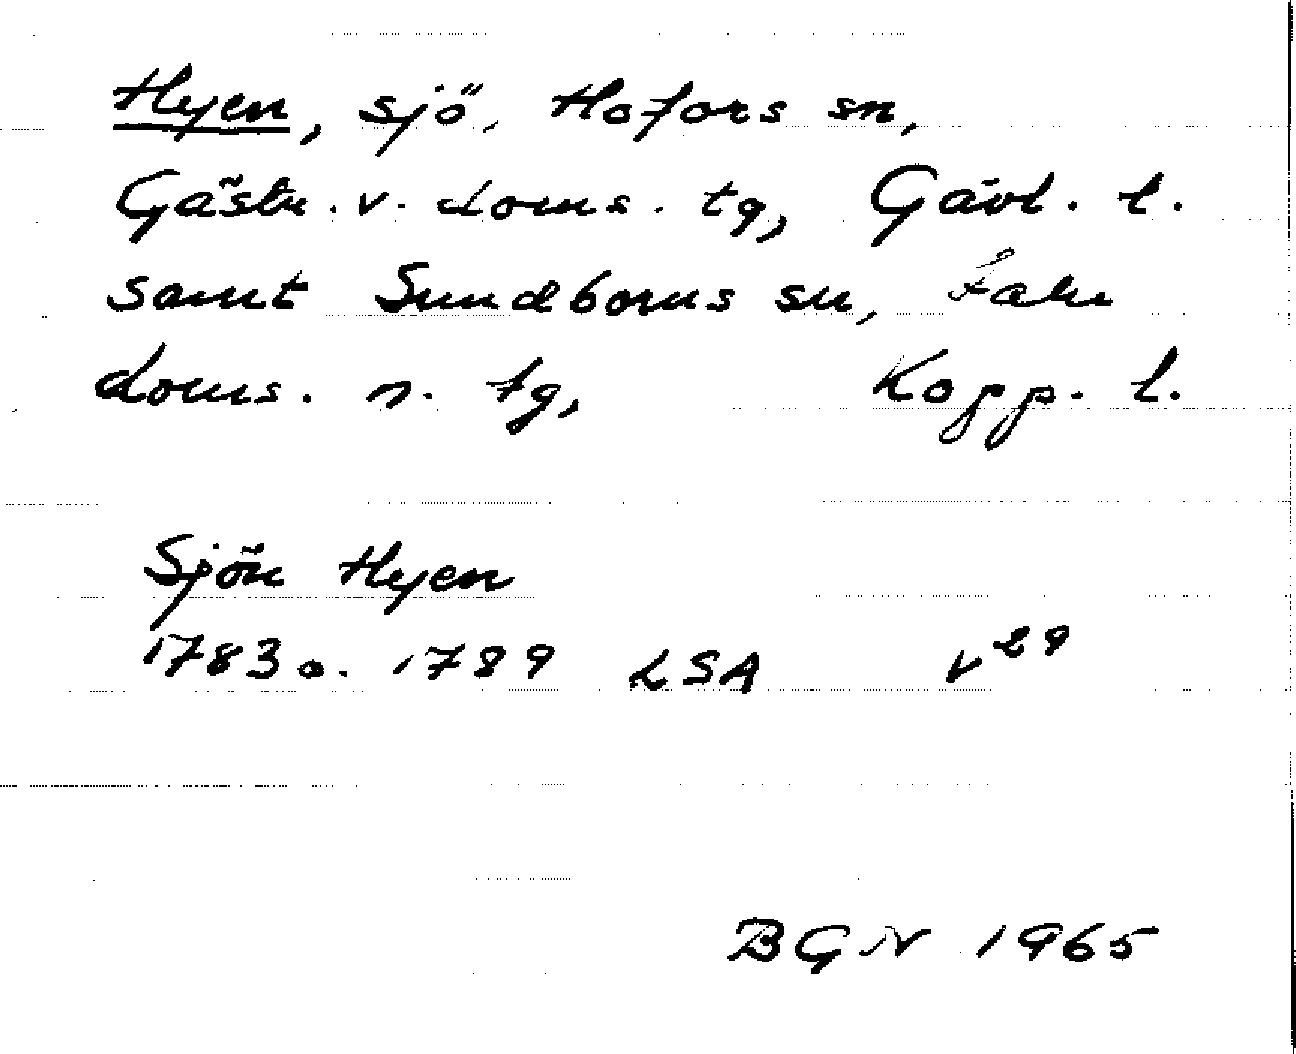 Hyen, sjö, Hofors sn,
Gästr. v. doms. tg, Gävl. l.
samt Sundborns sn, Falu
doms. n. tg, Kopp. l.
Sjön Hyen
1783 o. 1789 LSA v 29
BGN 1965